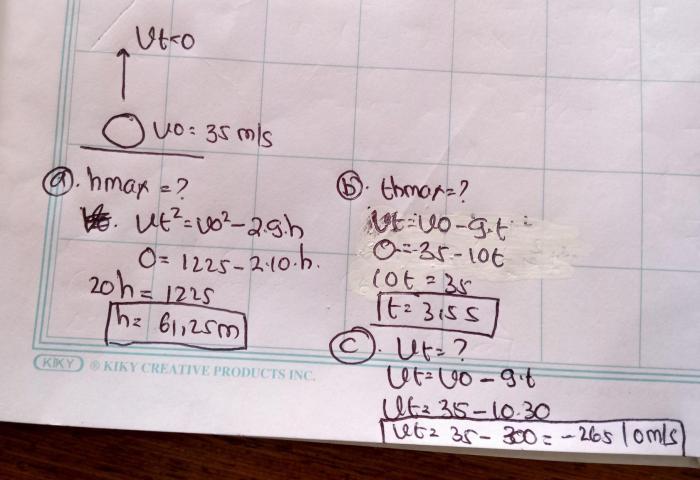 Vt=0
Vo = 35 m/s
a. hmax = ?
Vt² = Vo² - 2.g.h
0 = 1225 - 2.10.h.
20h = 1225
h = 61,25m
b. thmax = ?
Vt = Vo - g.t
0 = 35 - 10t
10t = 35
t = 3,5 s
c. Vt = ?
Vt = Vo - g.t
Vt = 35 - 10.30
Vt = 35 - 300 = -265 m/s
KIKY ® KIKY CREATIVE PRODUCTS INC.